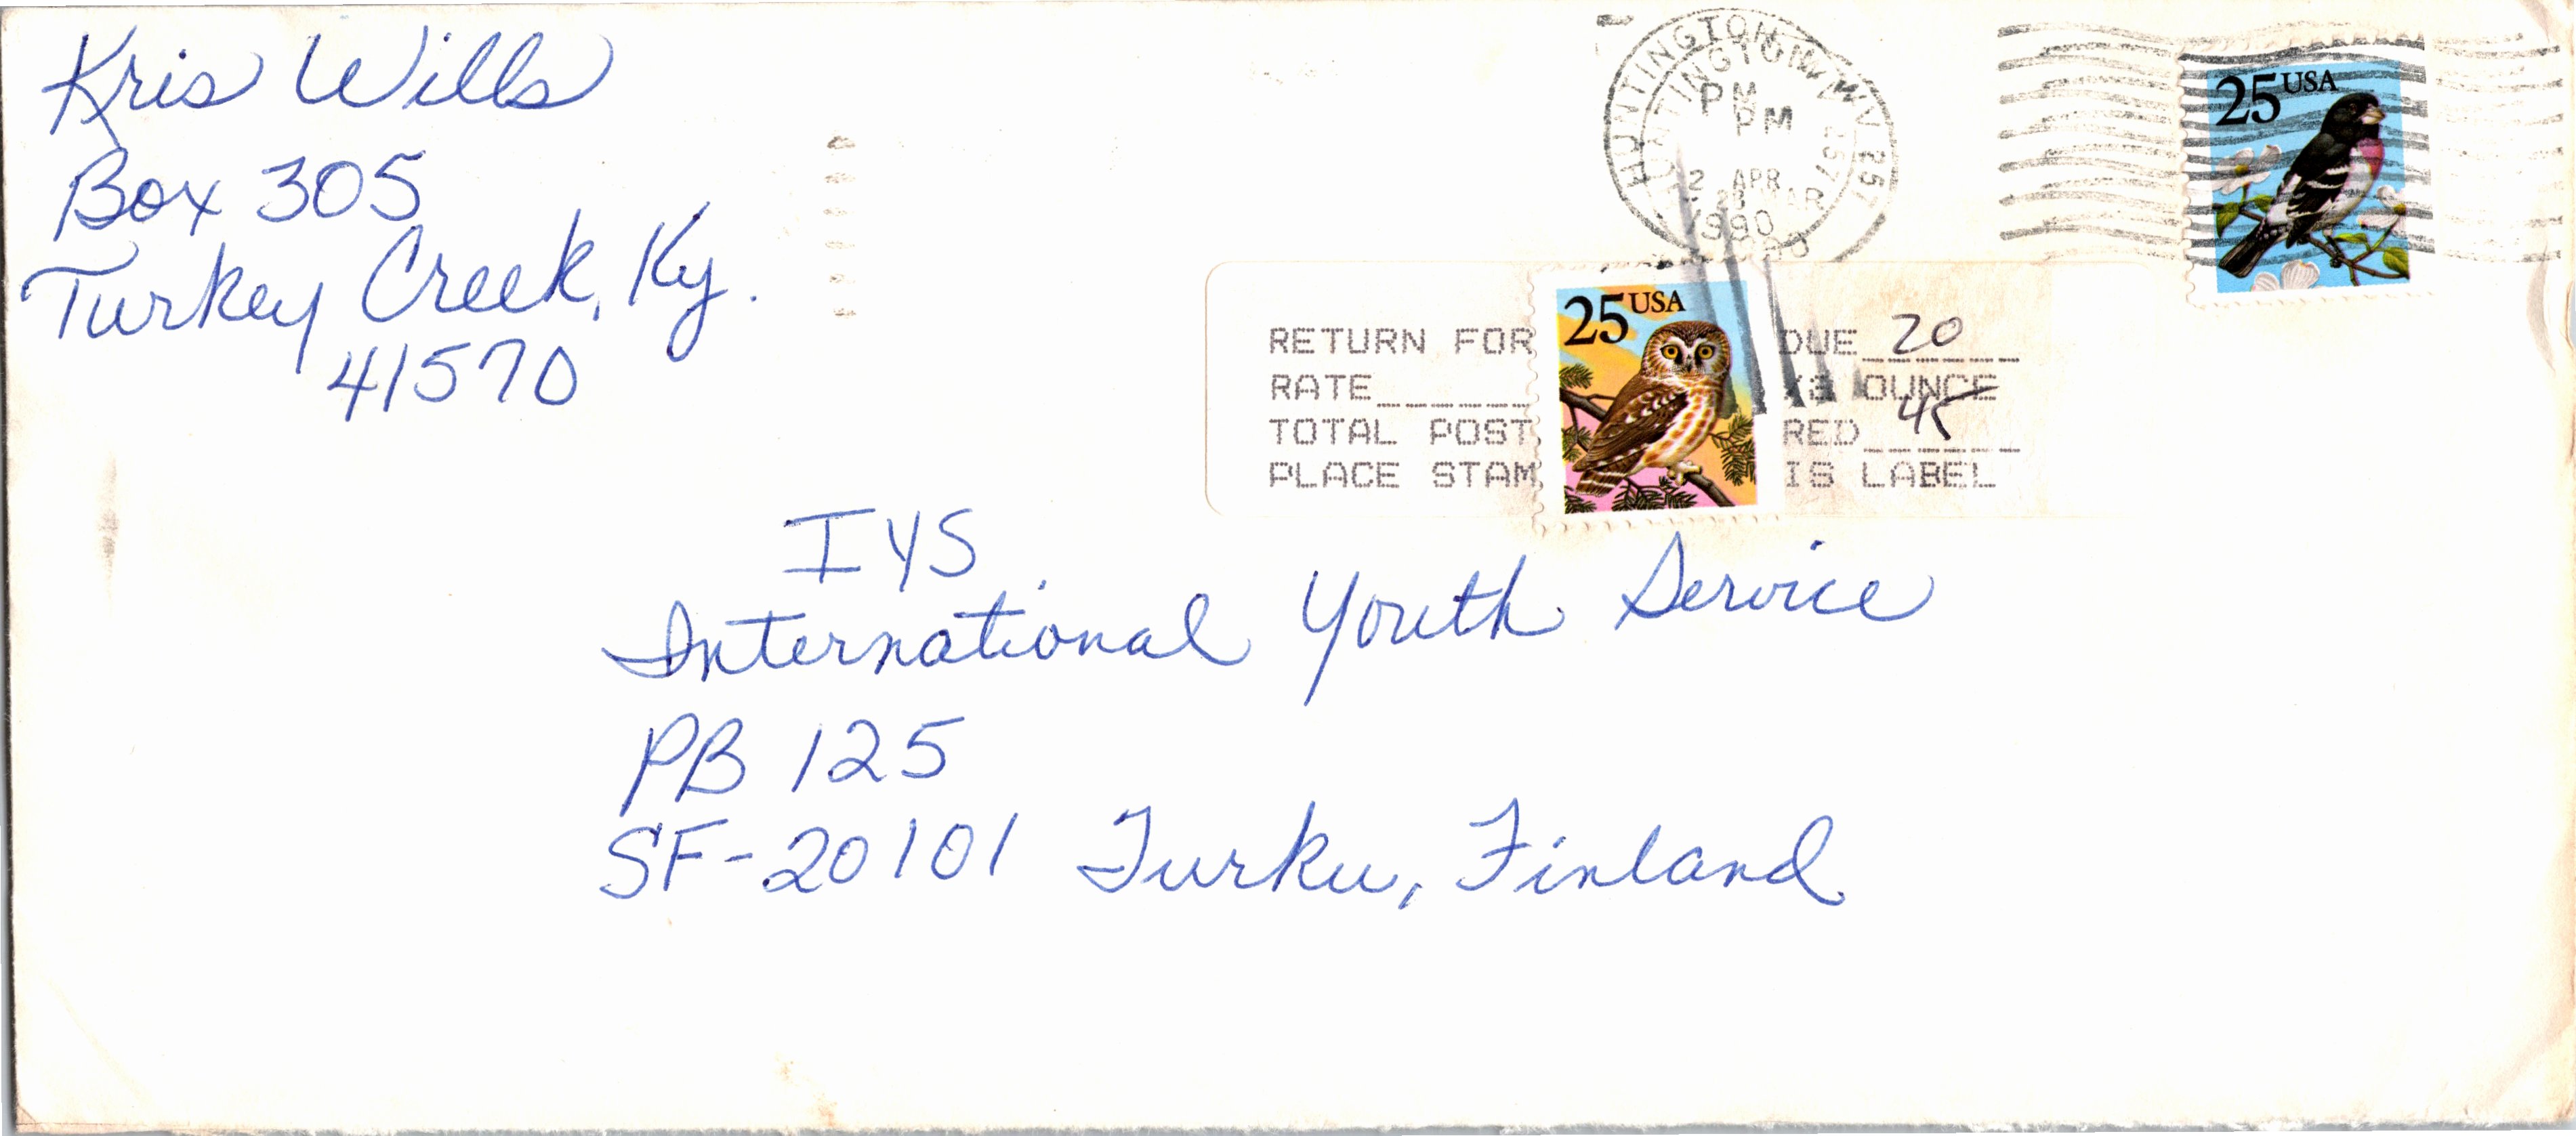 Kris Wills
Box 305
Turkey Creek, Ky.
41570
HUNTINGTON WV 257
HUNTINGTON WV 257
PM
PM
2 APR
28 MAR
1990
1990
25 USA
25 USA
RETURN FOR DUE 20
RATE OUNCE
TOTAL POST RED 45
PLACE STAM IS LABEL
IYS
International Youth Service
PB 125
SF-20101 Turku, Finland